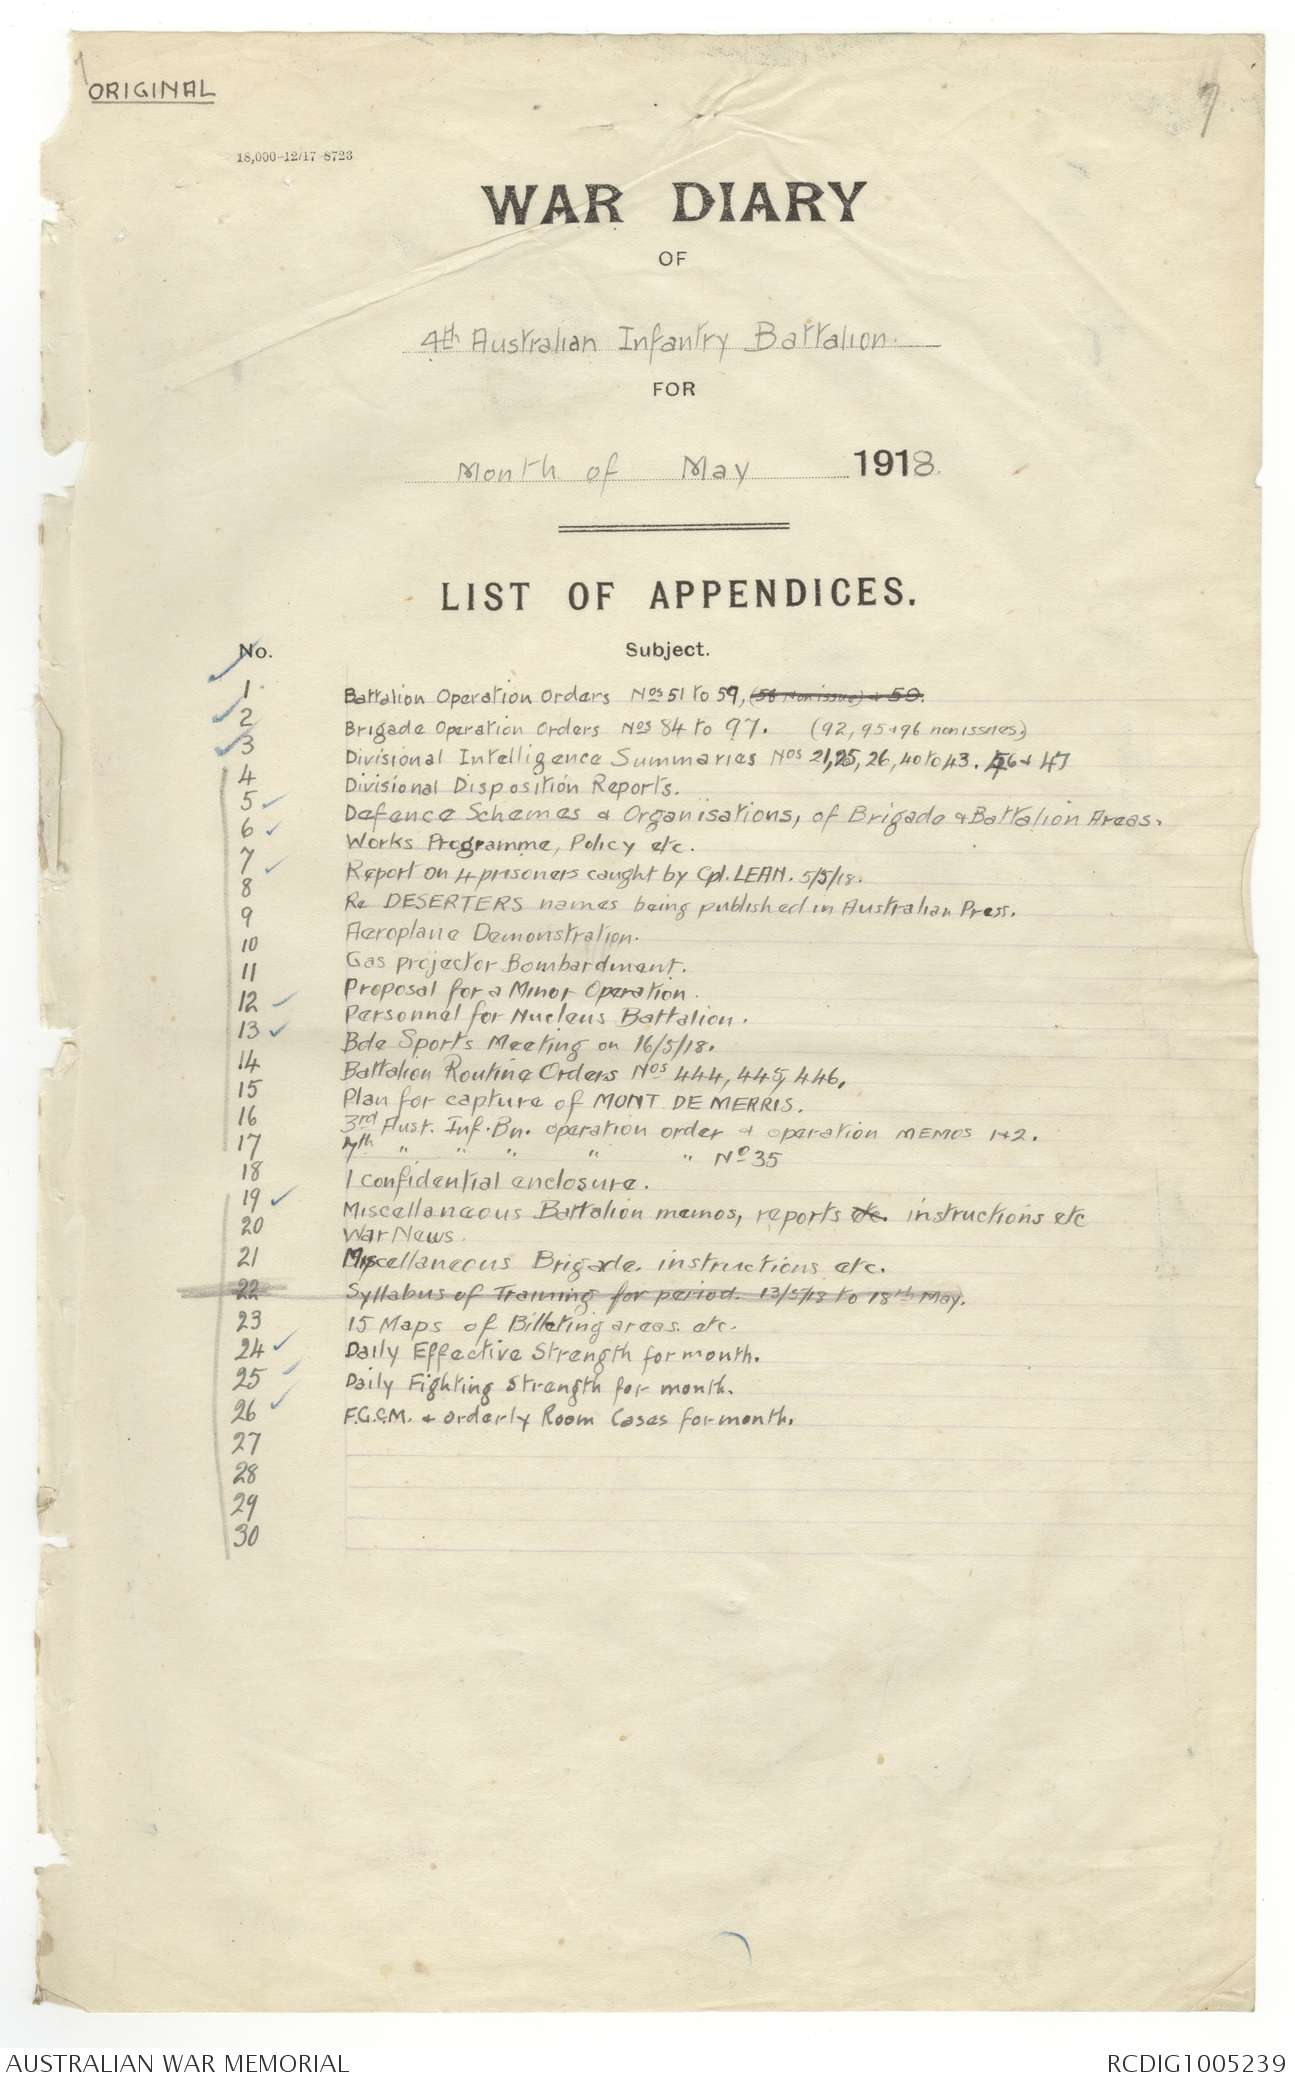 ORIGINAL
18,000-12/17 8723
WAR DIARY
OF
4th Australian Infantry Battalion.
FOR
Month of May 1918.
LIST OF APPENDICES.
No. Subject.
1 Battalion Operation Orders Nos 51 to 59, (58 Non issue) & 59.
2 Brigade Operation Orders Nos 84 to 97. (92, 95 & 96 non issues.)
3 Divisional Intelligence Summaries Nos 21, 25, 26, 40 to 43. 46 & 47
4 Divisional Disposition Reports.
5 Defence Schemes & Organisations, of Brigade & Battalion Areas.
6 Works Programme, Policy etc.
7 Report on 4 prisoners caught by Cpl. LEAN. 5/5/18.
8 Re DESERTERS names being published in Australian Press.
9 Aeroplane Demonstration.
10 Gas projector Bombardment.
11 Proposal for a Minor Operation.
12 Personnel for Nucleus Battalion.
13 Bde Sports Meeting on 16/5/18.
14 Battalion Routine Orders Nos 444, 445, 446.
15 Plan for capture of MONT DE MERRIS.
16 3rd Aust. Inf. Bn. operation order & operation MEMOS 1 & 2.
17 7th " " " " " No 35
18 1 confidential enclosure.
19 Miscellaneous Battalion memos, reports etc. instructions etc
20 War News.
21 Miscellaneous Brigade. instructions etc.
22 Syllabus of Training for period. 13/5/18 to 18th May.
23 15 Maps of Billeting areas. etc.
24 Daily Effective Strength for month.
25 Daily Fighting Strength for month.
26 F.G.C.M. & orderly Room Cases for month.
27
28
29
30
AUSTRALIAN WAR MEMORIAL RCDIG1005239